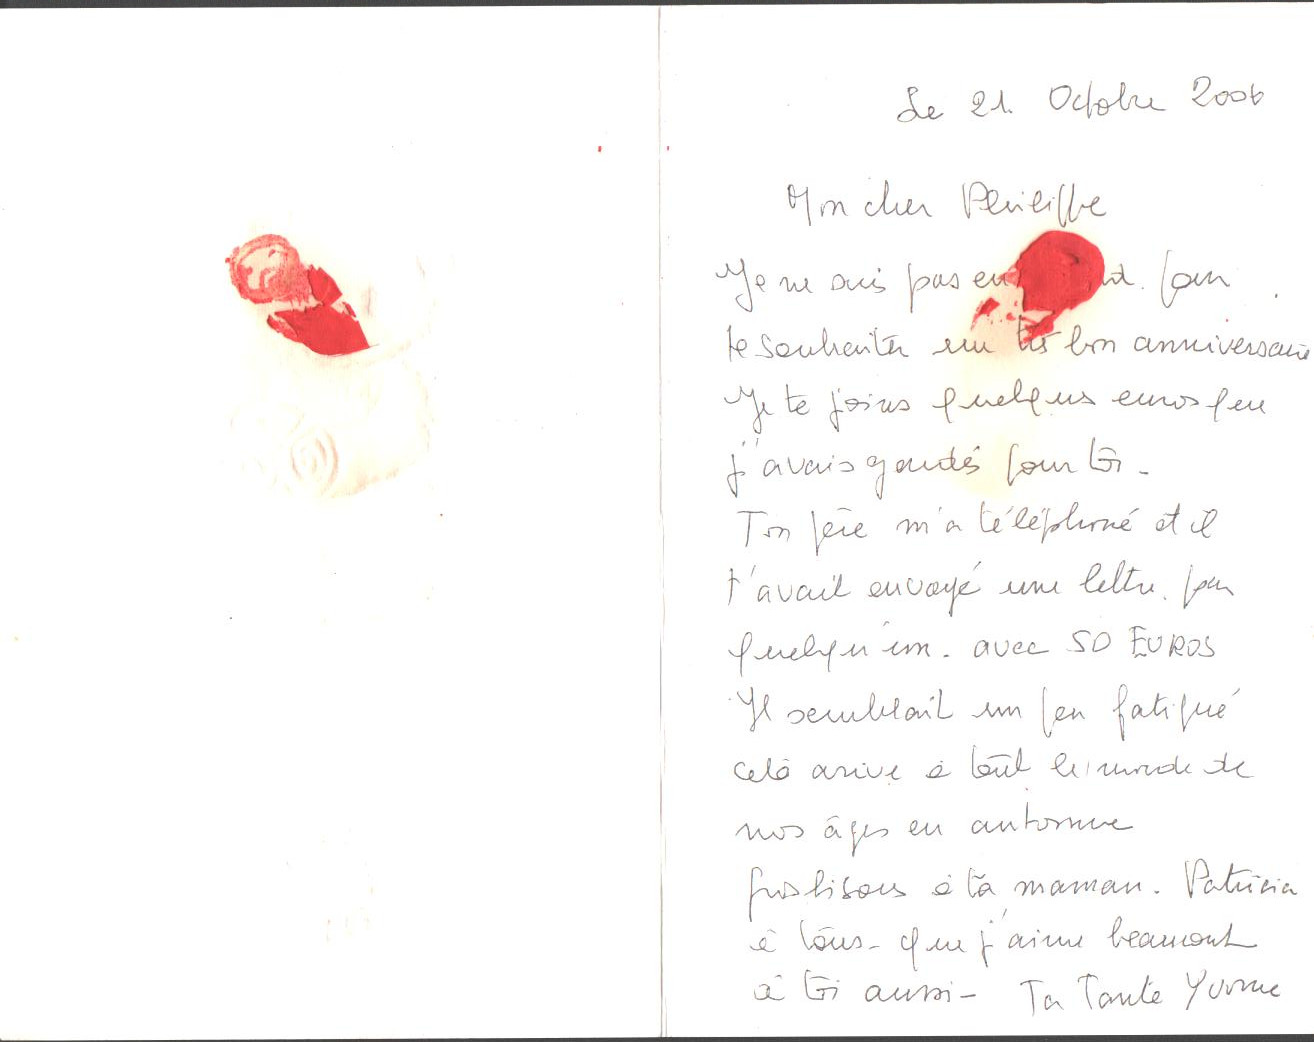 Le 21. Octobre 2006
Mon cher Philippe
Je ne suis pas en pour
te souhaiter un très bon anniversaire
Je te joins quelques euros que
j'avais gardés pour toi -
Ton père m'a téléphoné et il
t'avait envoyé une lettre. par
quelqu'un. avec 50 EUROS
Il semblait un peu fatigué
celà arrive à tout le monde de
nos âges en automne
gros bisous à ta maman. Patricia
à tous - que j'aime beaucoup
à toi aussi - Ta Tante Yvonne